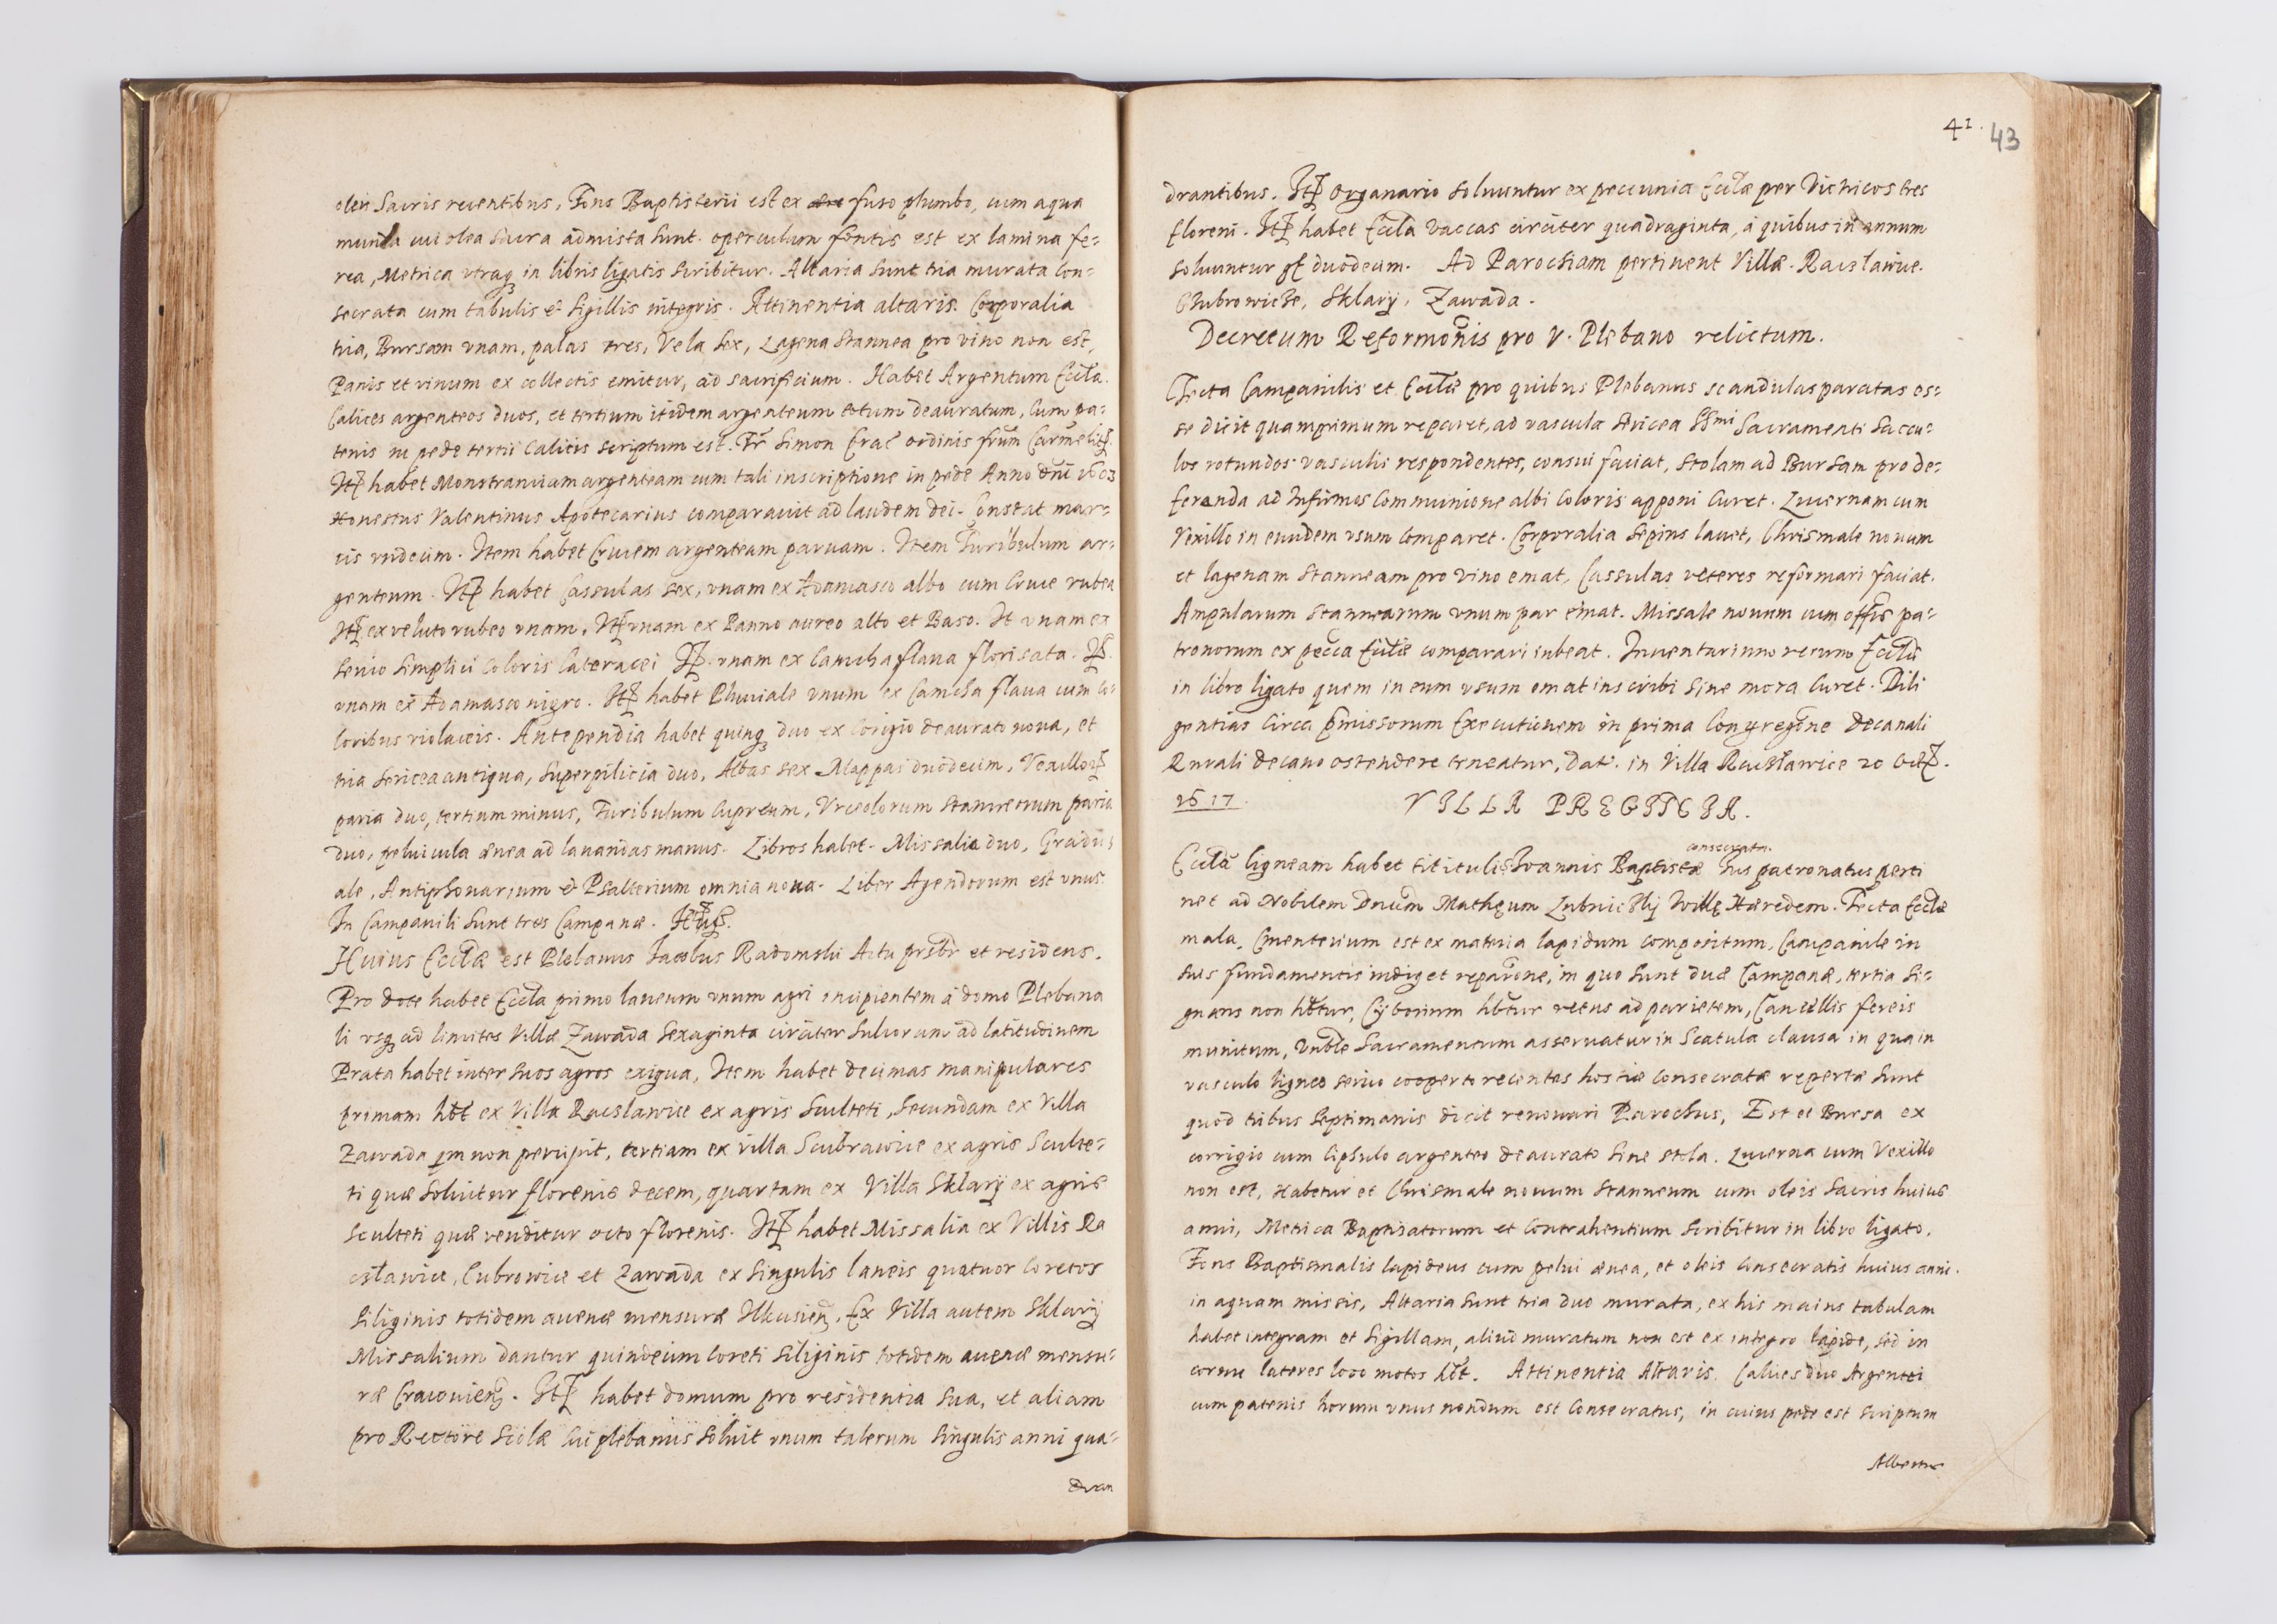 oleis Sacris recentibus, Fons Baptisterii est ex aere fuso plumbo, cum aqua
munda cui olea sacra admista sunt. operculum fontis est ex lamina fe-
rea, Metrica vtraq3 in libris ligatis scribitur. Altaria sunt tria murata Con-
secrata cum tabulis et Sigillis integris. Attinentia altaris. Corporalia
tria, Bursam vnam, palas tres, Vela sex, Lagena Stannea pro vino non est,
Panis et vinum ex collectis emitur, ad sacrificium. Habet Argentum Eccla.
Calices argenteos duos, et tertium itidem argenteum totum deauratum, Cum pa-
tenis in pede tertii Calicis scriptum est. Fr Simon ordinis frum
Itē habet Monstranciam argenteam cum tali inscriptione in pede Anno Dni 1603
Honestus Valentinus Apotecarius comparauit ad laudem dei. Constat mar-
cis vndecim. Item habet Crucem argenteam paruam. Item Turibulum ar-
genteum. Itē habet Cassulas sex, vnam ex Adamasco albo cum Cruce rubea
Itē ex veluto rubeo vnam, Itē vnam ex Panno aureo alto et Baso. It vnam ex
serico simplici Coloris Itē. vnam ex Camcha flaua florisata. Itē.
vnam ex Adamasco nigro. Itē habet Pluuiale vnum ex Camcha flaua cum Co-
loribus violaceis. Antependia habet quinq3 duo ex Corigio deaurato noua, et
tria sericea antiqua, superpilicia duo, Albas sex Mappas duodecim, Vexillorū
paria duo, tertium minus, Turibulum Cupreum, Vrceolorum stanneorum paria
duo, peluicula ænea ad lauandas manus. Libros habet. Missalia duo, Gradu-
ale, Antiphonarium et Psalterium omnia noua. Liber Agendorum est vnus.
In Campanili sunt tres Campanæ.
Huius Ecclæ est Plebanus Jacobus Radomski Actu prsbr et residens.
Pro dote habet Eccla primo laneum vnum agri incipientem à domo Plebana
li vsq3 ad limites Villæ Zawada sexaginta circiter sulcorum ad latitudinem
Prata habet inter suos agros exigua, Item habet decimas manipulares
primam hbt ex Villa Racslawice ex agris Sculteti, Secundam ex Villa
Zawada qm non percipit, tertiam ex villa Scubrawice ex agris Sculte-
ti quæ soluitur florenis decem, quartam ex Villa Sklary ex agris
Sculteti quæ venditur octo florenis. Itē habet Missalia ex Villis Ra
cslawice, Cubrowice et Zawada ex singulis laneis quatuor Coretos
siliginis totidem auenæ mensuræ Ilkusien. Ex Villa autem Sklary
Missalium dantur quindecim Coreti siliginis totidem auenæ mensu-
ræ Cracouien. Itē habet domum pro residentia sua, et aliam
pro Rectore Scolæ cui plebanus soluit vnum talerum singulis anni qua-
dran
41. 43
drantibus. Itē Organario soluuntur ex peccunia Ecclæ per Victricos tres
floreni. Itē habet Eccla vaccas circiter quadraginta, à quibus in annum
soluuntur gr duodecim. Ad Parochiam pertinent Villæ. Racslawice.
Chubrowiche, Sklary, Zawada.
Decretum Reformonis pro V. Plebano relictum.
Tecta Campanilis et Ecclæ pro quibus Plebanus scandulas paratas es-
se dicit quamprimum reparet, ad vascula sericea SSmi Sacramenti Saccu-
los rotundos vasculis respondentes, consui faciat, Stolam ad Bursam pro de-
ferenda ad Infirmos Communione albi Coloris apponi Curet. Lucernam cum
Vexillo in eundem vsum Comparet. Corporalia sepius lauet, Chrismale nouum
et lagenam Stanneam pro vino emat, Cassulas veteres reformari faciat.
Ampularum stannearum vnum par emat. Missale nouum cum offis pa-
tronorum ex pecca Ecclæ comparari iubeat. Inuentarium rerum Ecclæ
in libro ligato quem in eum vsum emat inscribi sine mora Curet. Dili
gentias Circa pmissorum Executionem in prima Congregone Decanali
Rurali decano ostendere teneatur, Dat. in Villa Racslawice 20 Octē.
1617. VILLA PREGINIA.
consecratā.
Ecclā ligneam habet tituli S Joannis Baptistæ Ius patronatus perti
net ad Nobilem Dnum Mathęum Lubnicky Villę Hæredem. Tecta Ecclæ
mala, Cmenterium est ex materia lapidum compositum, Campanile in
suis fundamentis indiget reparone, in quo sunt duæ Campanæ, tertia si-
gnans non hbtur, Cyborium hbtur vetus ad parietem, Cancellis fereis
munitum, Vnble Sacramentum asseruatur in Scatula clausa in qua in
vasculo ligneo serico cooperto recentes hostiæ Consecratæ repertæ sunt
quod tribus septimanis dicit renouari Parochus, Est et Bursa ex
corrigio cum Cipsulo argenteo deaurato sine stola. Lucerna cum Vexillo
non est, Habetur et Chrismale nouum stanneum cum oleis sacris huius
anni, Metrica Baptisatorum et Contrahentium scribitur in libro ligato.
Fons Baptismalis lapideus cum pelui ænea, et oleis Consecratis huius anni.
in aquam missis, Altaria sunt tria duo murata, ex his maius tabulam
habet integram et Sigillam, aliud muratum non est ex integro lapide, sed in
cornu lateres loco motos hbt. Attinentia Altaris. Calices duo Argentei
cum patenis horum vnus nondum est Consecratus, in cuius pede est scriptum
Albertus